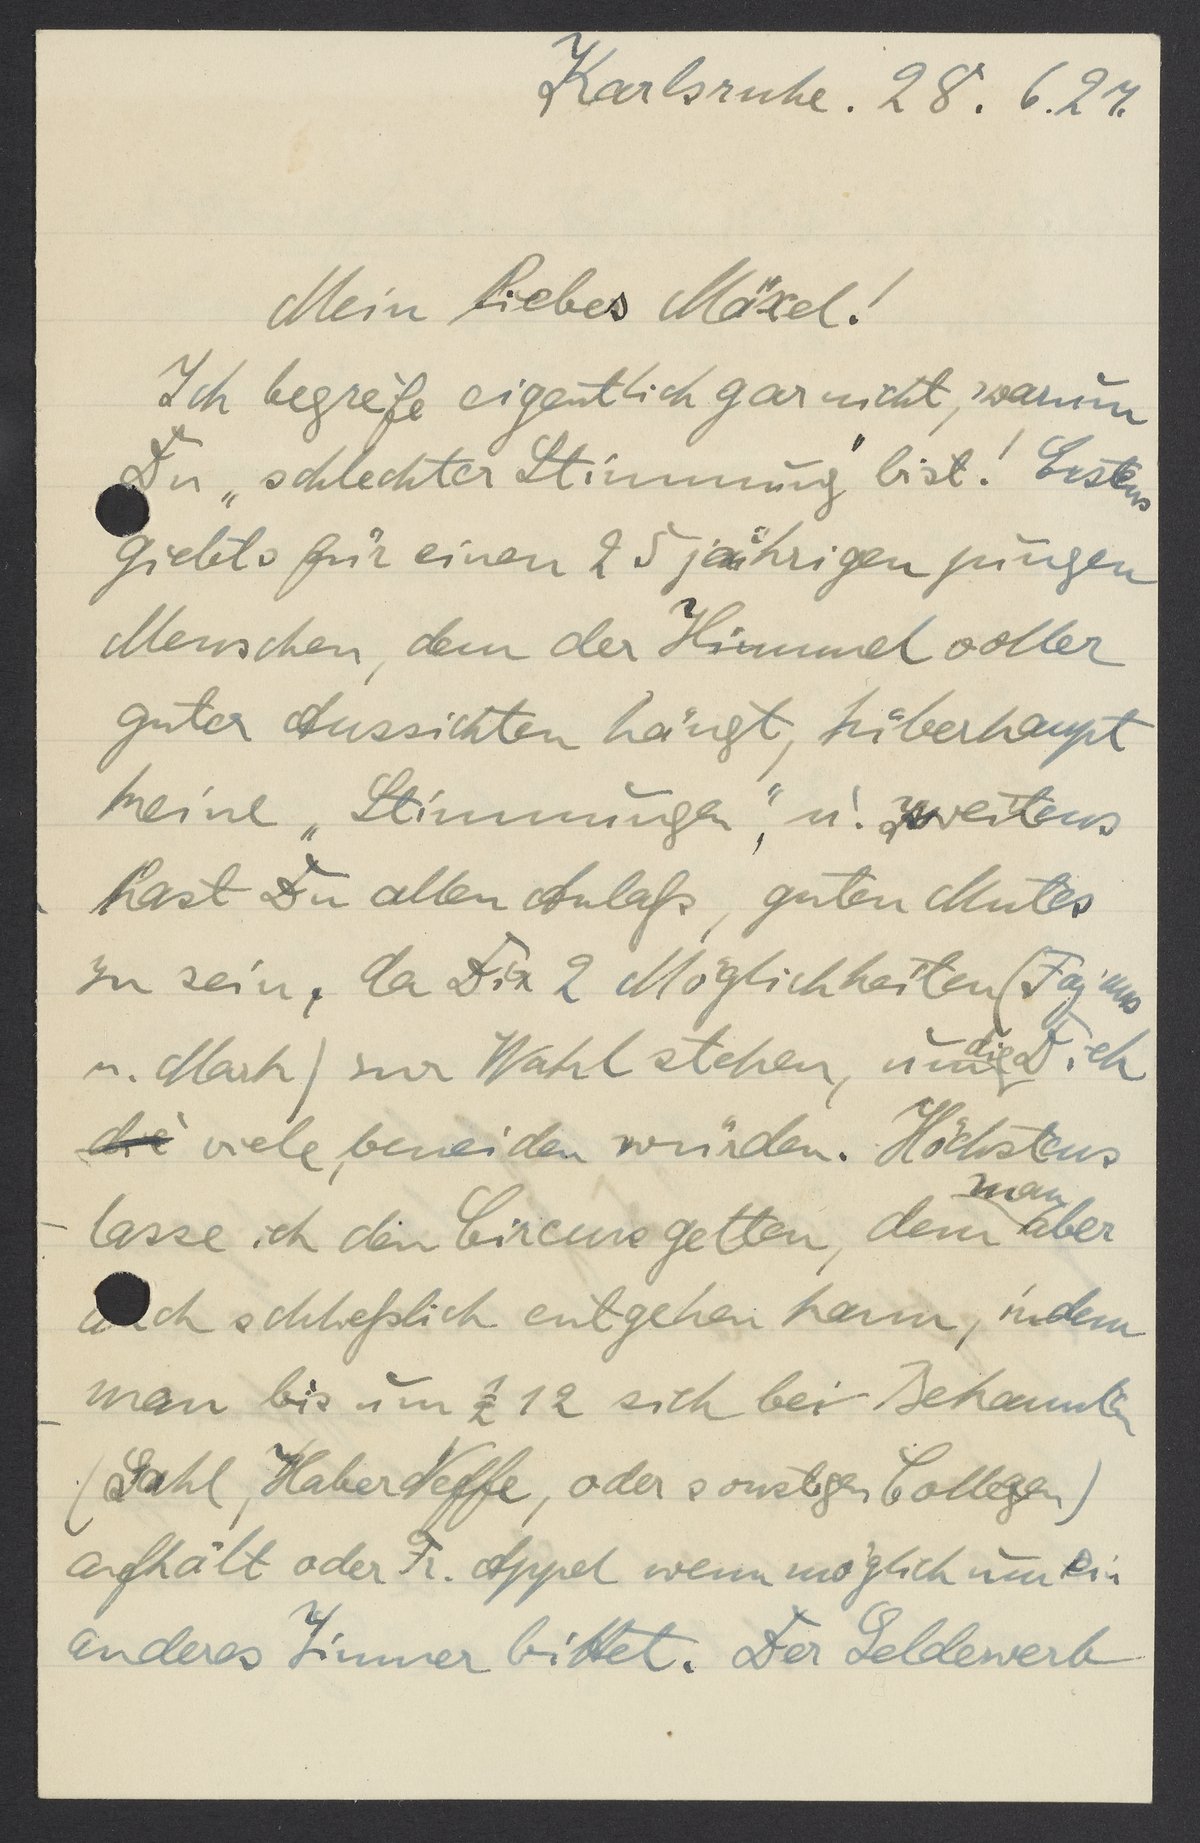 Karlsruhe. 28. 6. 27.
Mein liebes Mäxel!
Ich begreife eigentlich gar nicht, warum
Du „schlechter Stimmung" bist! Erstens
giebts für einen 25 jährigen jungen
Menschen, dem der Himmel voller
guter Aussichten hängt, überhaupt
keine „Stimmungen", u. zweitens
hast Du allen Anlaß, guten Mutes
zu sein, da Dir 2 Möglichkeiten (Fajans
u. Mark) zur Wahl stehen, um die Dich
die viele beneiden würden. Höchstens
lasse ich den Circus gelten, dem man aber
auch schließlich entgehen kann, indem
man bis um ½ 12 sich bei Bekannten
(Dahl, Haber Neffe, oder sonstgen Collegen)
aufhält oder Fr. Appel wenn möglich um ein
anderes Zimmer bittet. Der Gelderwerb